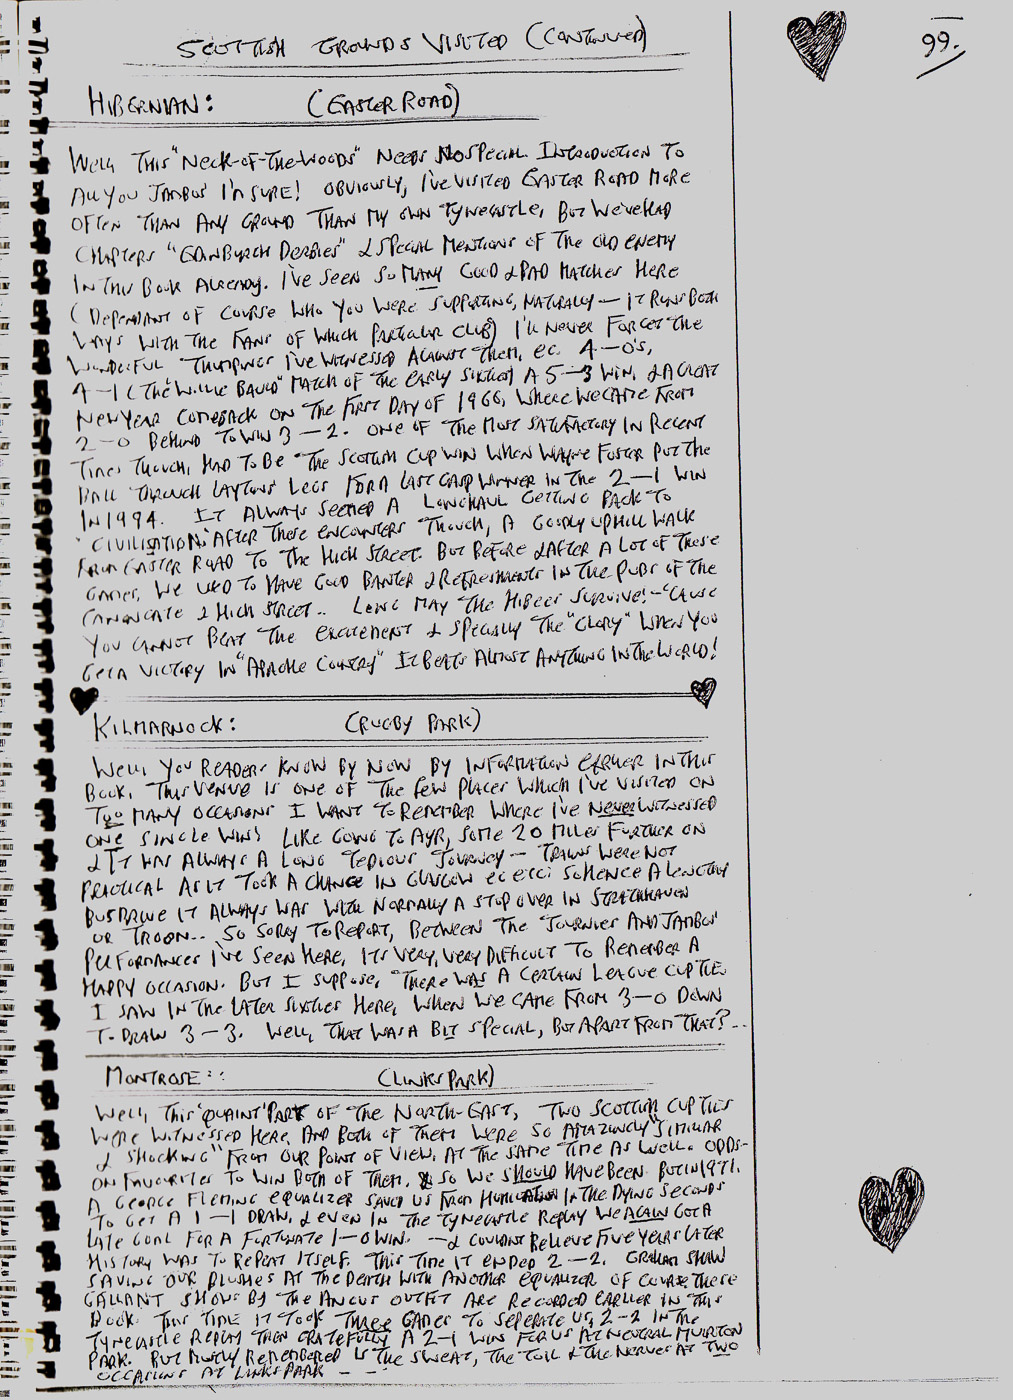 SCOTTISH GROUNDS VISITED (CONTINUED)
99.
HIBERNIAN: (EASTER ROAD)
WELL, THIS "NECK-OF-THE-WOODS" NEEDS NO SPECIAL INTRODUCTION TO
ALL YOU JAMBOS I'M SURE! OBVIOUSLY, I'VE VISITED EASTER ROAD MORE
OFTEN THAN ANY GROUND THAN MY OWN TYNECASTLE, BUT WE'VE HAD
CHAPTERS "EDINBURGH DERBIES" & SPECIAL MENTIONS OF THE OLD ENEMY
IN THIS BOOK ALREADY. I'VE SEEN SO MANY GOOD & BAD MATCHES HERE
(DEPENDANT OF COURSE WHO YOU WERE SUPPORTING, NATURALLY — IT RUNS BOTH
WAYS WITH THE FANS OF WHICH PARTICULAR CLUB) I'LL NEVER FORGET THE
WONDERFUL THUMPINGS I'VE WITNESSED AGAINST THEM, EG. 4-0'S,
4-1 (THE "WILLIE BAULD" MATCH OF THE EARLY SIXTIES) A 5-3 WIN, & A GREAT
NEW YEAR COMEBACK ON THE FIRST DAY OF 1966, WHERE WE CAME FROM
2-0 BEHIND TO WIN 3-2. ONE OF THE MOST SATISFACTORY IN RECENT
TIMES THOUGH, HAD TO BE THE SCOTTISH CUP WIN WHEN WAYNE FOSTER PUT THE
BALL THROUGH LAYTONS' LEGS FOR A LAST GASP WINNER IN THE 2-1 WIN
IN 1994. IT ALWAYS SEEMED A LONG HAUL GETTING BACK TO
'CIVILISATION' AFTER THESE ENCOUNTERS THOUGH, A GOODLY UPHILL WALK
FROM EASTER ROAD TO THE HIGH STREET. BUT BEFORE & AFTER A LOT OF THESE
GAMES, WE USED TO HAVE GOOD BANTER & REFRESHMENTS IN THE PUBS OF THE
CANONGATE & HIGH STREET.. LONG MAY THE HIBEES SURVIVE! — 'CAUSE
YOU CANNOT BEAT THE EXCITEMENT & SPECIALLY THE "GLORY" WHEN YOU
GET A VICTORY IN "APACHE COUNTRY" IT BEATS ALMOST ANYTHING IN THE WORLD!
KILMARNOCK: (RUGBY PARK)
WELL, YOU READERS KNOW BY NOW BY INFORMATION EARLIER IN THIS
BOOK, THIS VENUE IS ONE OF THE FEW PLACES WHICH I'VE VISITED ON
TOO MANY OCCASIONS I WANT TO REMEMBER WHERE I'VE NEVER WITNESSED
ONE SINGLE WIN! LIKE GOING TO AYR, SOME 20 MILES FURTHER ON
& IT WAS ALWAYS A LONG TEDIOUS JOURNEY — TRAINS WERE NOT
PRACTICAL AS IT TOOK A CHANGE IN GLASGOW SO HENCE A LENGTHY
BUS DRIVE IT ALWAYS WAS WITH NORMALLY A STOP OVER IN STRATHHAVEN
OR TROON.. SO SORRY TO REPORT, BETWEEN THE JOURNIES AND JAMBOS'
PERFORMANCES I'VE SEEN HERE, ITS VERY, VERY DIFFICULT TO REMEMBER A
HAPPY OCCASION. BUT I SUPPOSE, THERE WAS A CERTAIN LEAGUE CUP TIE
I SAW IN THE LATER SIXTIES HERE, WHEN WE CAME FROM 3-0 DOWN
TO DRAW 3-3. WELL, THAT WAS A BIT SPECIAL, BUT APART FROM THAT?...
MONTROSE:: (LINKS PARK)
WELL, THIS 'QUAINT' PARK OF THE NORTH-EAST, TWO SCOTTISH CUP TIES
WERE WITNESSED HERE, AND BOTH OF THEM WERE SO AMAZINGLY "SIMILAR
& SHOCKING" FROM OUR POINT OF VIEW, AT THE SAME TIME AS WELL. ODDS-
ON FAVOURITES TO WIN BOTH OF THEM, & SO WE SHOULD HAVE BEEN. BUT IN 1971,
A GEORGE FLEMING EQUALIZER SAVED US FROM HUMILIATION IN THE DYING SECONDS
TO GET A 1-1 DRAW, & EVEN IN THE TYNECASTLE REPLAY WE AGAIN GOT A
LATE GOAL FOR A FORTUNATE 1-0 WIN. — & COULDN'T BELIEVE FIVE YEARS LATER
HISTORY WAS TO REPEAT ITSELF. THIS TIME IT ENDED 2-2. GRAHAM SHAW
SAVING OUR BLUSHES AT THE DEATH WITH ANOTHER EQUALIZER OF COURSE THESE
GALLANT SHOWS BY THE ANGUS OUTFIT ARE RECORDED EARLIER IN THIS
BOOK. THIS TIME IT TOOK THREE GAMES TO SEPERATE US, 2-2 IN THE
TYNECASTLE REPLAY THEN GRATEFULLY A 2-1 WIN FOR US AT NEUTRAL MUIRTON
PARK. BUT MOSTLY REMEMBERED IS THE SWEAT, THE TOIL & THE NERVES AT TWO
OCCASIONS AT LINKS PARK — —